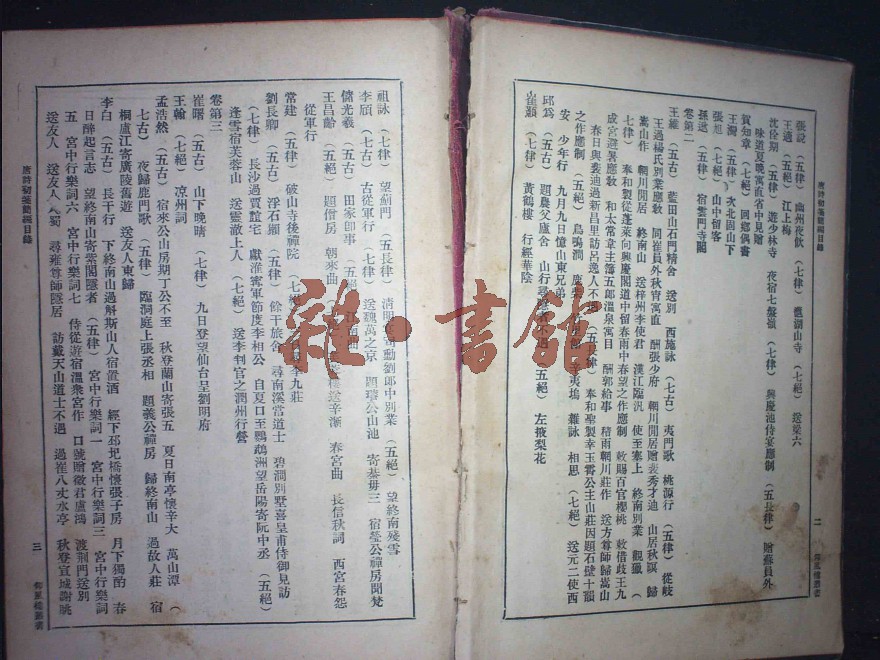 唐詩初箋簡編目錄
張說 (五律) 幽州夜飲 (七律) 㴩湖山寺 (七絕) 送梁六
王適 (五絕) 江上梅
沈佺期 (五律) 遊少林寺 夜宿七盤嶺 (七律) 興慶池侍宴應制 (五長律) 贈蘇員外
味道夏晚寓直省中見贈
賀知章 (七絕) 回鄉偶書
王灣 (五律) 次北固山下
張旭 (七絕) 山中留客
孫逖 (五律) 宿雲門寺閣
卷第二
王維 (五古) 藍田山石門精舍 送別 西施詠 (七古) 夷門歌 桃源行 (五律) 從岐
王過楊氏別業應教 同崔員外秋宵寓直 酬張少府 輞川閒居贈裴秀才迪 山居秋暝 歸
嵩山作 輞川閒居 終南山 送梓州李使君 漢江臨汎 使至塞上 終南別業 觀獵 (
七律) 奉和聖製從蓬萊向興慶閣道中留春雨中春望之作應制 敕賜百官櫻桃 敕借岐王九
成宮避暑應教 和太常韋主簿五郎溫泉寓目 酬郭給事 積雨輞川莊作 送方尊師歸嵩山
春日與裴迪過新昌里訪呂逸人不遇 (五長律) 奉和聖製幸玉眞公主山莊因題石壁十韻
之作應制 (五絕) 鳥鳴澗 辛夷塢 雜詠 相思 (七絕) 送元二使西
安 少年行 九月九日憶山東兄弟
邱爲 (五古) 題農父廬舍 山行 不遇 (五絕) 左掖梨花
崔顥 (七律) 黃鶴樓 行經華陰
二
祖詠 (七律) 望薊門 (五長律) 清明 司勳劉郎中別業 (五絕) 望終南殘雪
李頎 (七古) 古從軍行 (七律) 送魏萬之京 題璿公山池 寄綦毋三 宿瑩公禪房聞梵
儲光羲 (五古) 田家即事 (五絕) 江南曲
王昌齡 (五絕) 題僧房 朝來曲 樓送辛漸 春宮曲 長信秋詞 西宮春怨
從軍行
常建 (五律) 破山寺後禪院 (七絕) 李九莊
劉長卿 (五古) 浮石瀨 (五律) 餘干旅舍 尋南溪常道士 碧澗別墅喜皇甫侍御見訪
(七律) 長沙過賈誼宅 獻淮甯軍節度李相公 自夏口至鸚鵡洲望岳陽寄阮中丞 (五絕)
逢雪宿芙蓉山 送靈澈上人 (七絕) 送李判官之潤州行營
卷第三
崔曙 (五律) 山下晚晴 (七律) 九日登望仙台呈劉明府
王翰 (七絕) 涼州詞
孟浩然 (五古) 宿來公山房期丁公不至 秋登蘭山寄張五 夏日南亭懷辛大 萬山潭 (
七古) 夜歸鹿門歌 (五律) 臨洞庭上張丞相 題義公禪房 歸終南山 過故人莊 宿
桐廬江寄廣陵舊遊 送友人東歸
李白 (五古) 長干行 下終南山過斛斯山人宿置酒 經下邳圯橋懷張子房 月下獨酌 春
日醉起言志 望終南山寄紫閣隱者 (五律) 宮中行樂詞一 宮中行樂詞三 宮中行樂詞
五 宮中行樂詞六 宮中行樂詞七 侍從遊宿溫泉宮作 口號贈徵君盧鴻 渡荊門送別
送友人 送友人入蜀 尋雍尊師隱居 訪戴天山道士不遇 過崔八丈水亭 秋登宣城謝朓
唐詩初箋簡編目錄
三
雜·書館